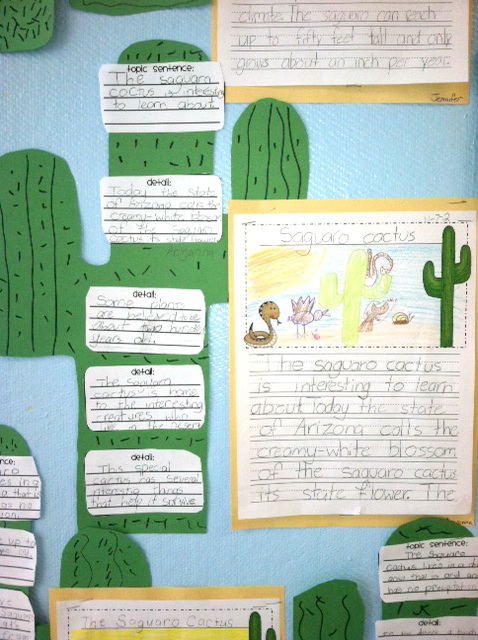 climate. The saguaro can reach
up to fifty feet tall and only
grows about an inch per year.
Jennifer
topic sentence:
The saguaro
cactus is interesting
to learn about.
detail:
Today the state
of Arizona calls the
creamy-white bloss
of the saguaro
cactus its state flower.
detail:
Some plants
are believed to be
about two hundred
years old.
detail:
The saguaro
cactus is home
to the interesting
creatures who
live in the desert
detail:
This special
cactus has several
interesting things
that help it survive
Saguaro cactus
The saguaro cactus
is interesting to learn
about. Today the state
of Arizona calls the
creamy-white blossom
of the saguaro cactus
its state flower. The
topic sentence:
The Saguaro
cactus lives in a
has no precipitation
detail:
The Saguaro Cactus